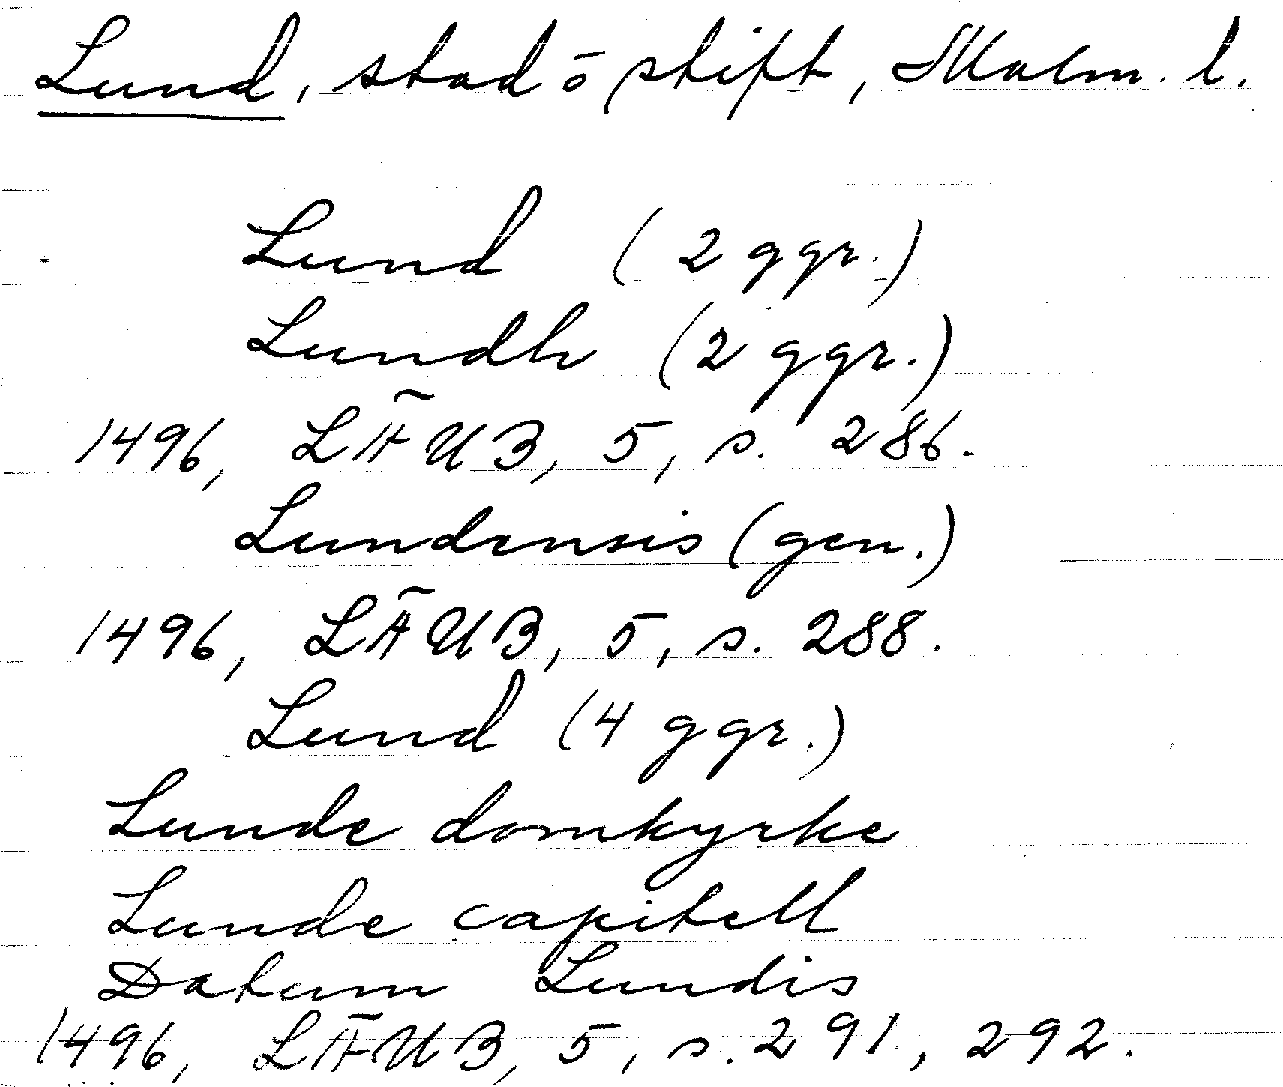 Lund, stad ō stift, Malm. l.
Lund (2 ggr.)
Lundh (2 ggr.)
1496, LÄUB, 5, s. 286.
Lundensis (gen.)
1496, LÄUB, 5, s. 288.
Lund (4 ggr.)
Lunde domkyrke
Lunde capitell
Datum Lundis
1496, LÄUB, 5, s. 291, 292.